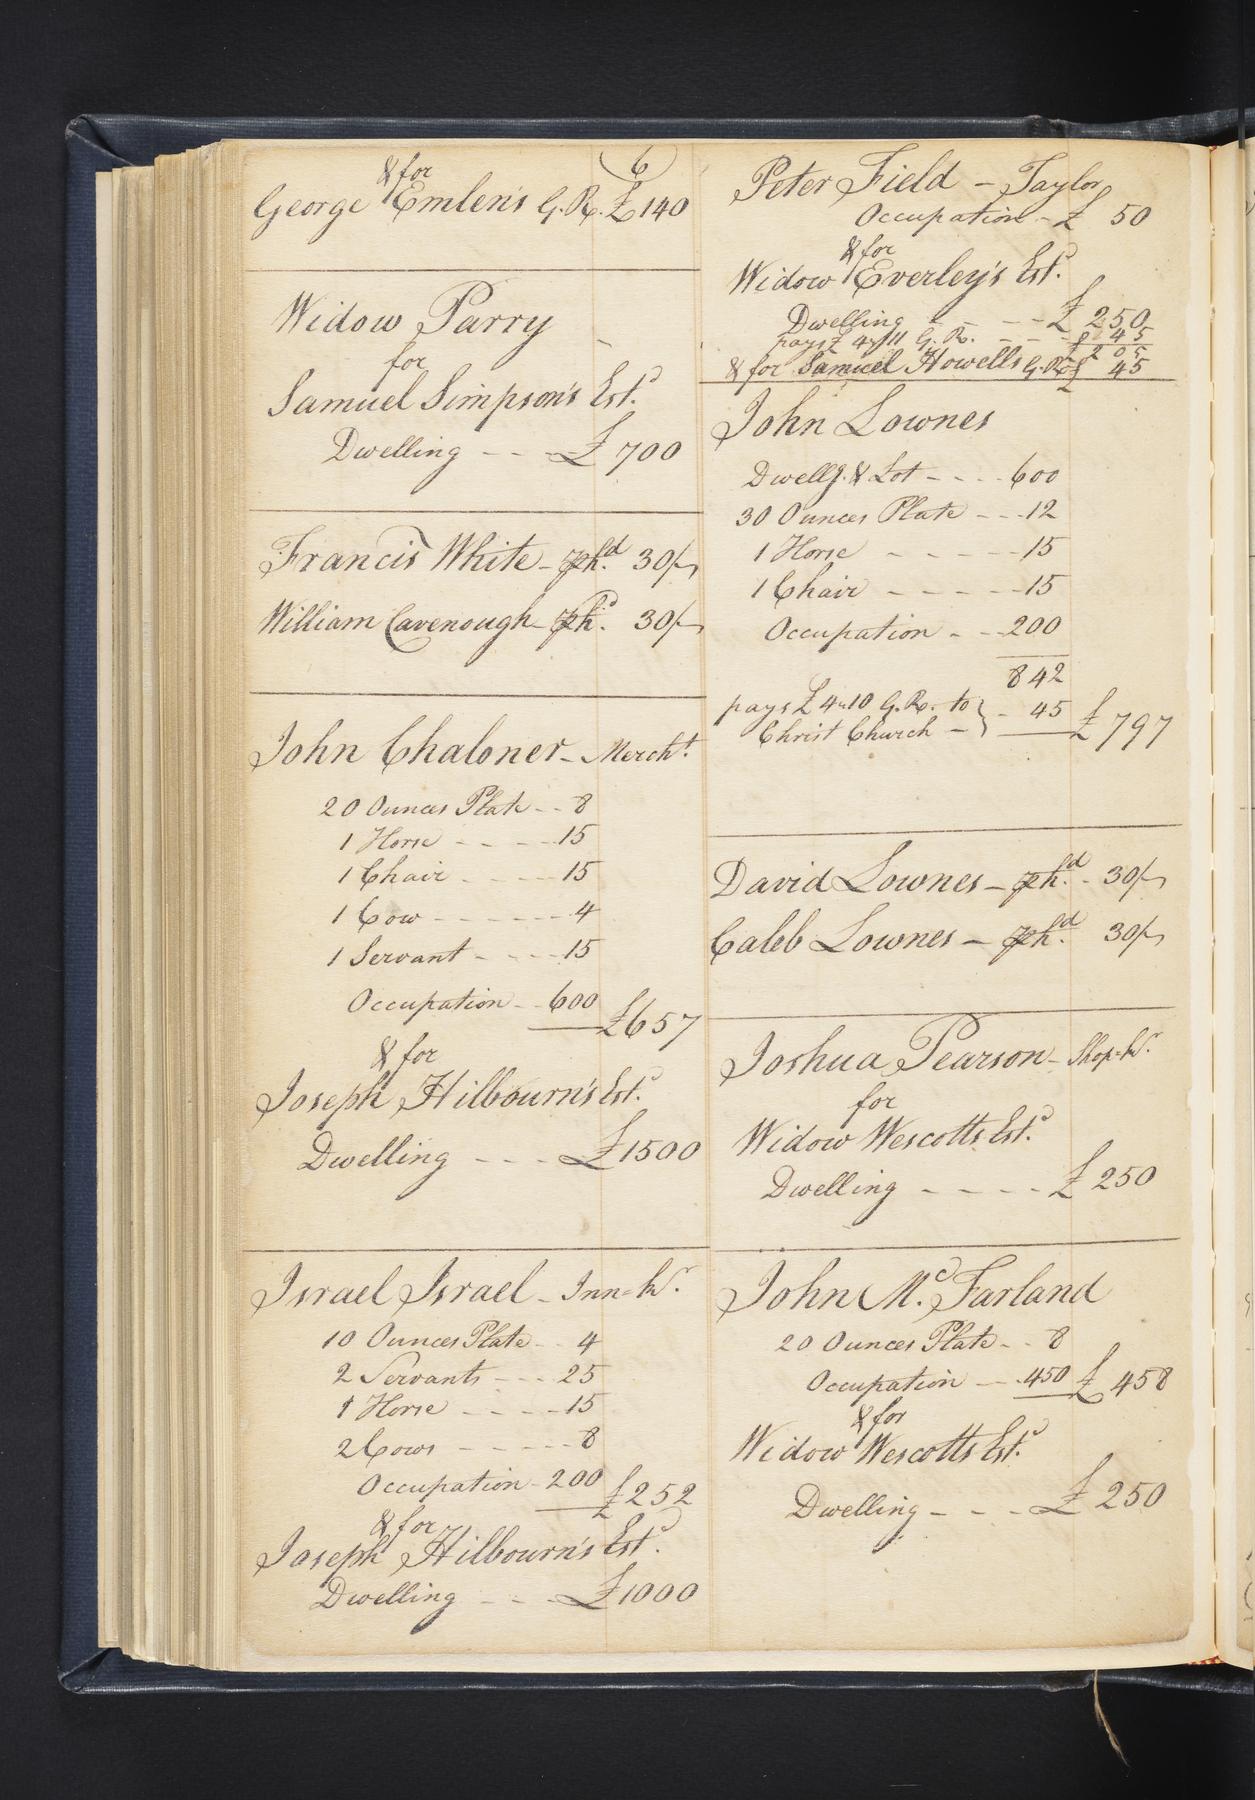 6
& for
George Emlen's G. R. £ 140
Widow Parry
for
Samuel Simpson's Estd.
Dwelling - - - £ 700
Francis White - phd. 30/-
William Cavenough - phd. 30/-
John Chaloner - Mercht.
20 Ounces Plate - - 8
1 Horse - - - - 15
1 Chair - - - - 15
1 Cow - - - - - - 4
1 Servant - - - - 15
Occupation - - 600
£ 657
& for
Joseph Hilbourn's Estd.
Dwelling - - - £ 1500
Israel Israel - Inn=kr.
10 Ounces Plate - - 4
2 Servants - - - 25
1 Horse - - - - 15
2 Cows - - - - - 8
Occupation - 200
£ 252
& for
Joseph Hilbourn's Estd.
Dwelling - - - £ 1000
Peter Field - Taylor
Occupation - £ 50
& for
Widow Everley's Estd.
Dwelling - - - - £ 250
pays £ 4 11 G. R. - - - 45
£ 205
& for Samuel Howells G. R. £ 45
John Lownes
Dwellg. & Lot - - - - 600
30 Ounces Plate - - - 12
1 Horse - - - - - 15
1 Chair - - - - - 15
Occupation - - - 200
842
pays £ 4 10 G. R. to } - 45
Christ Church - £ 797
David Lownes - phd. - 30/-
Caleb Lownes - phd. 30/-
Joshua Pearson - Shop=kr.
for
Widow Wescotts Estd.
Dwelling - - - - £ 250
John Mc. Farland
20 Ounces Plate - - 8
Occupation - - 450 £ 458
& for
Widow Wescotts Estd.
Dwelling - - - £ 250